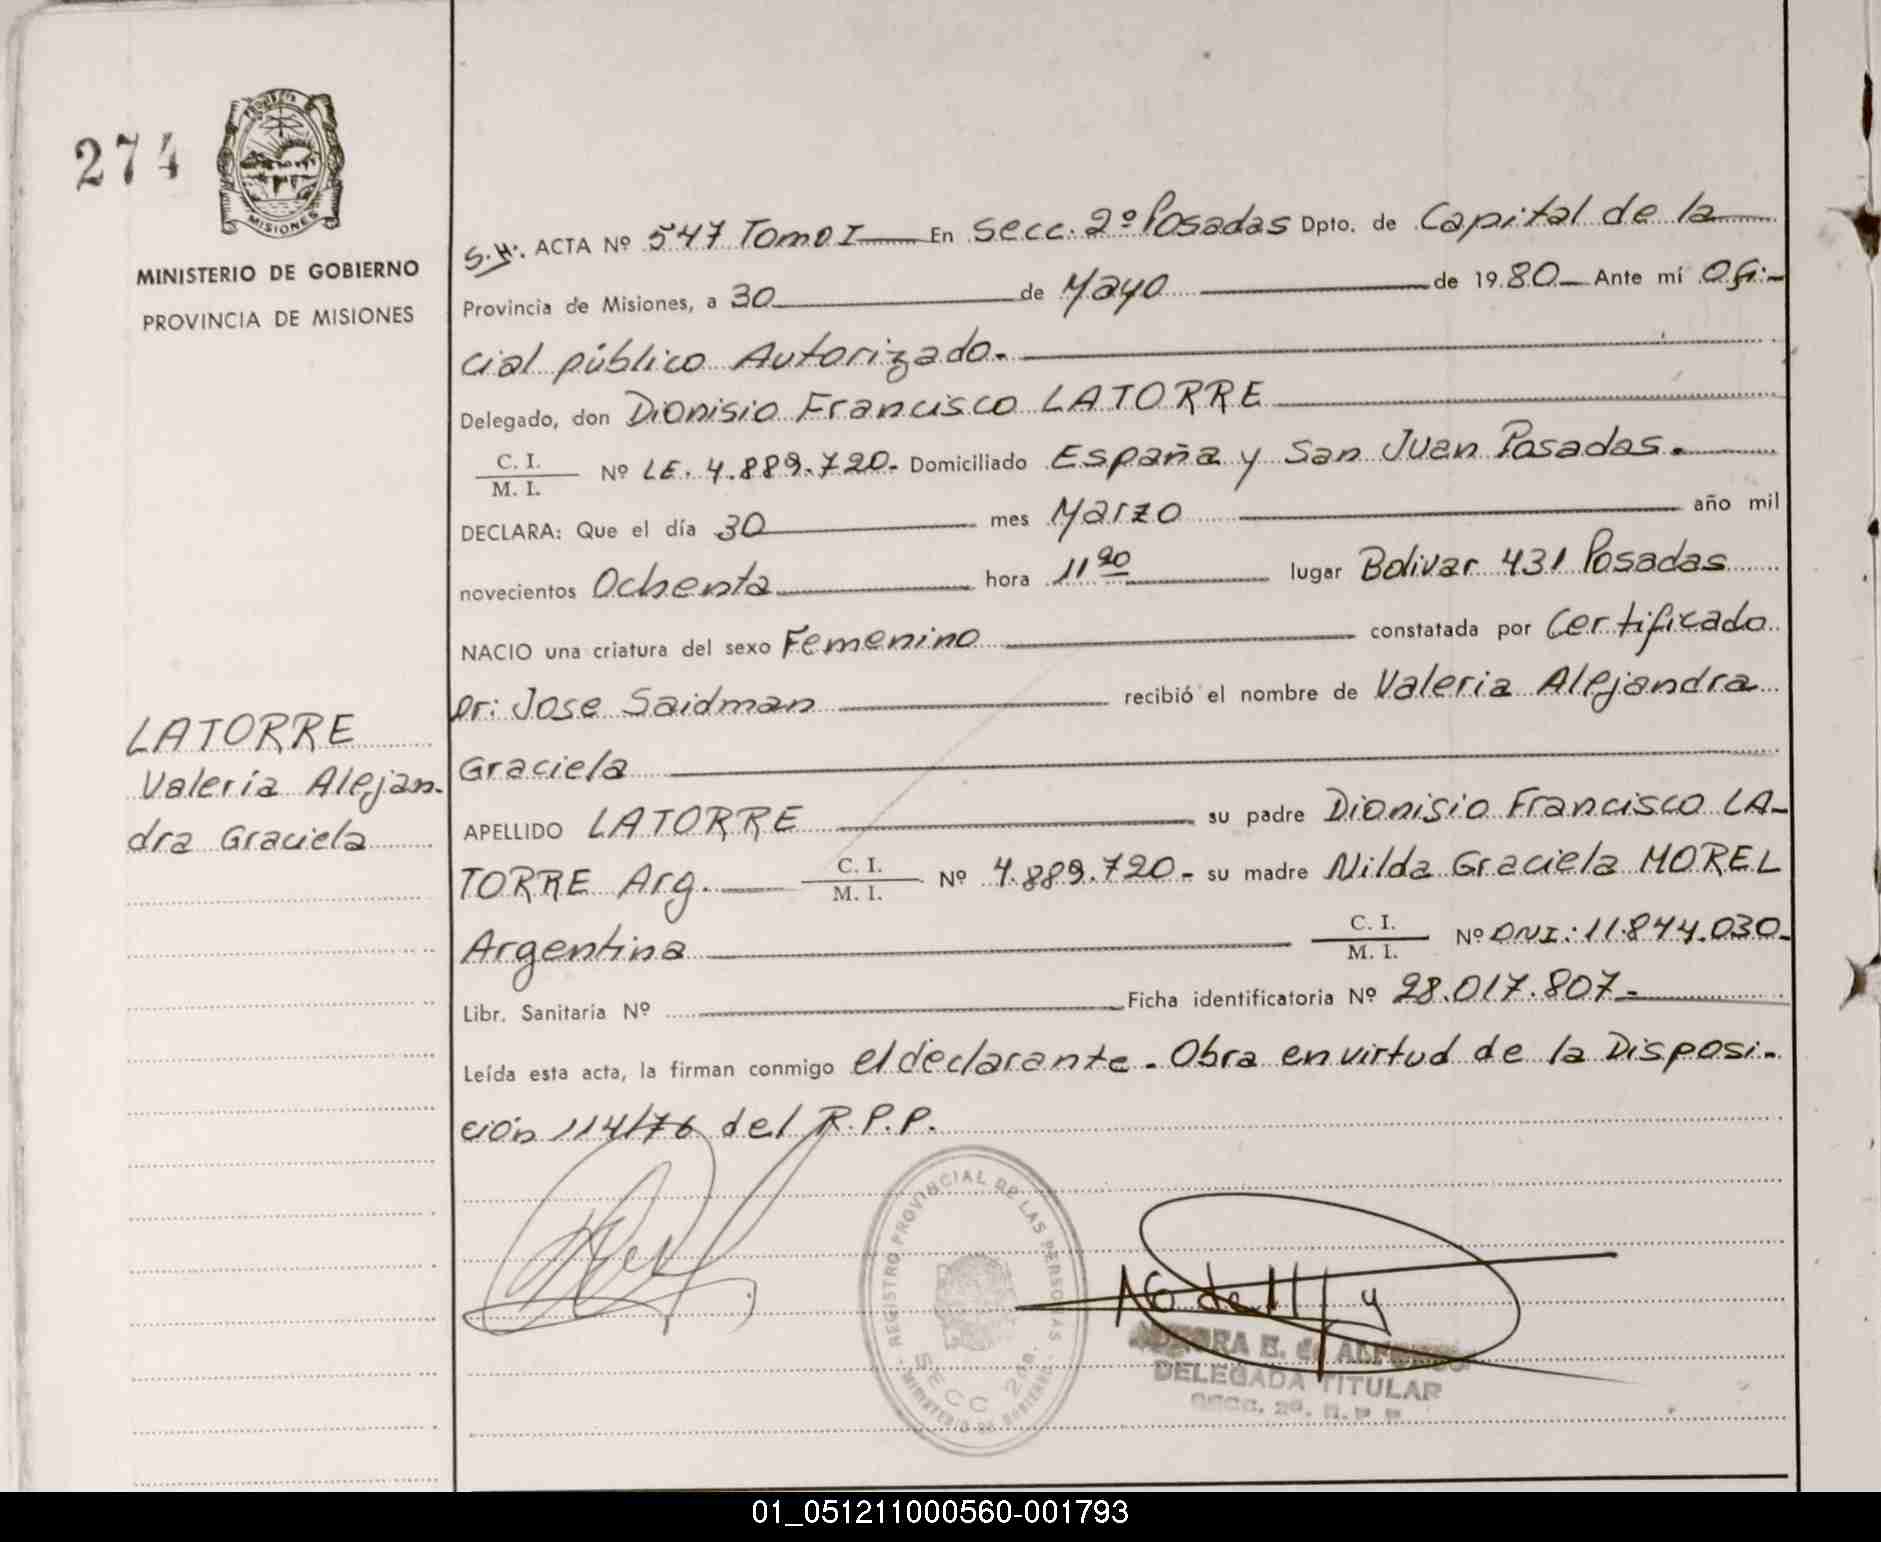 274
PROVINCIA
MISIONES
MINISTERIO DE GOBIERNO
PROVINCIA DE MISIONES
LATORRE
Valeria Alejan-
dra Graciela
S.H. ACTA Nº 547 Tomo I En Secc. 2º Posadas Dpto. de Capital de la
Provincia de Misiones, a 30 de Mayo de 1980 Ante mí Ofi-
cial público Autorizado.
Delegado, don Dionisio Francisco LATORRE
C. I.
M. I. Nº LE. 4.889.720.- Domiciliado España y San Juan Posadas.
DECLARA: Que el día 30 mes Marzo año mil
novecientos Ochenta hora 11 20 lugar Bolivar 431 Posadas
NACIO una criatura del sexo Femenino constatada por Certificado
Dr: Jose Saidman recibió el nombre de Valeria Alejandra
Graciela
APELLIDO LATORRE su padre Dionisio Francisco LA-
TORRE Arg. C. I. M. I. Nº 4.889.720.- su madre Nilda Graciela MOREL
Argentina C. I. M. I. Nº DNI.: 11.844.030.
Libr. Sanitaria Nº Ficha identificatoria Nº 28.017.807.-
Leída esta acta, la firman conmigo el declarante. Obra en virtud de la Disposi-
ción 114/76 del R.P.P.
REGISTRO PROVINCIAL DE LAS PERSONAS
SECC 2da.
MINISTERIO DE GOBIERNO
E. de ALFONSO
DELEGADA TITULAR
SECC. 2ª. R. P. P.
01_051211000560-001793